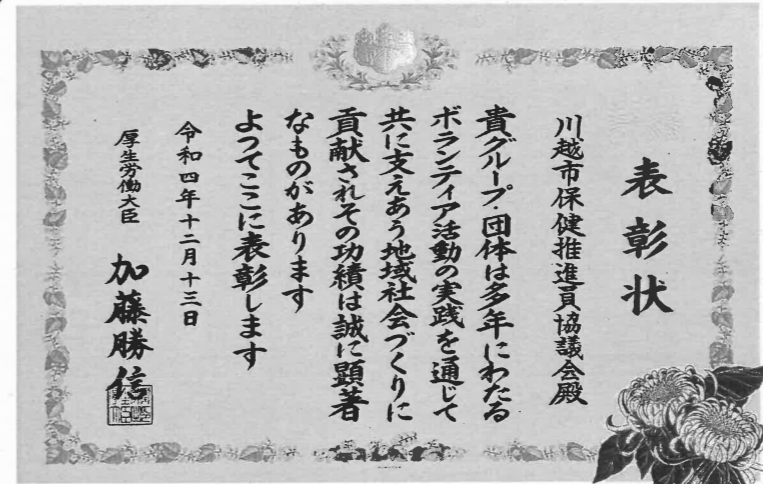 表彰状
川越市保健推進員協議会殿
貴グループ・団体は多年にわたる
ボランティア活動の実践を通じて
共に支えあう地域社会づくりに
貢献されその功績は誠に顕著
なものがあります
よつてここに表彰します
令和四年十二月十三日
厚生労働大臣 加藤勝信